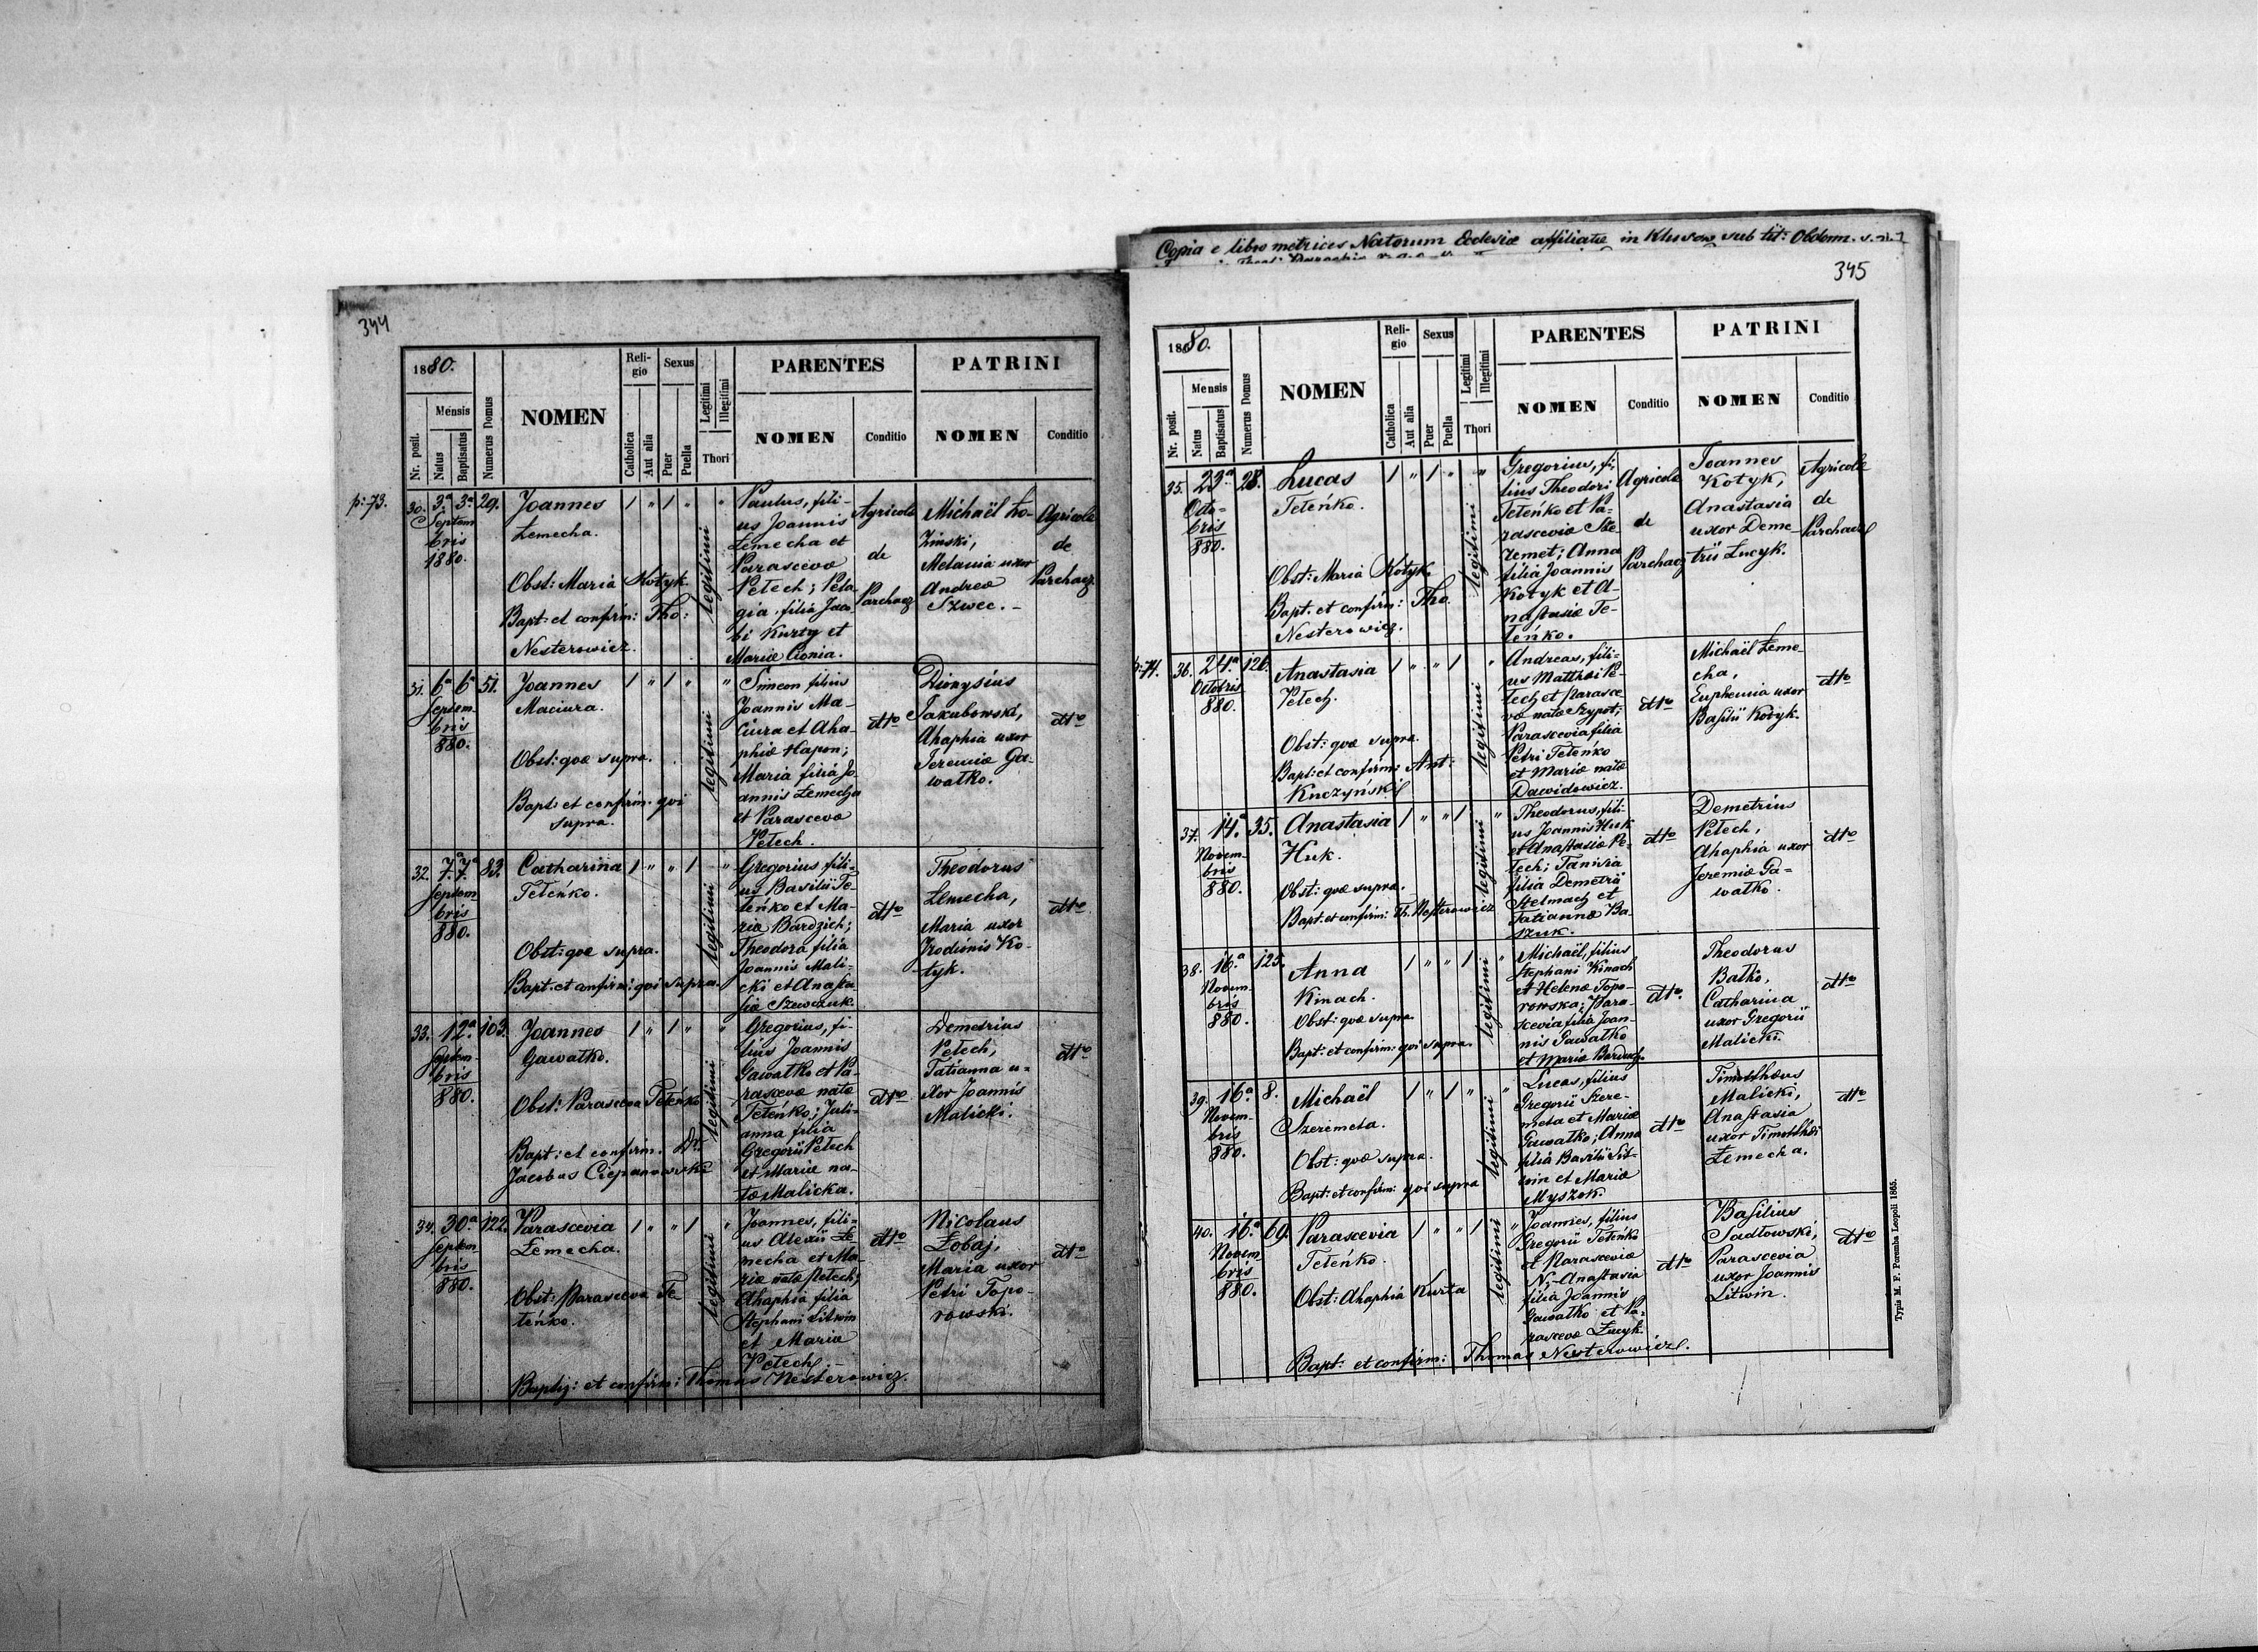 344
1880.
Nr. posit.
Mensis
Natus
Baptisatus
Numerus Domus
NOMEN
Religio
Catholica
Aut alia
Sexus
Puer
Puella
Legitimi
Illegitimi
Thori
PARENTES
NOMEN
Conditio
PATRINI
NOMEN
Conditio
p: 73.
30. 3ª 3ª 29.
Septem
bris
1880.
Joannes
Łemecha.
Obst: Maria Kotyk
Bapt: et confirm: Tho:
Nesterowicz.
1 " 1 " "
legitimi
Paulus, fili-
us Joannis
Łemecha et
Parascevæ
Petech; Pela
gia filia Jaco
bi Kurty et
Mariæ Cionia.
Agricolæ
de
Parchacz
Michaël Ło-
ziński,
Melania uxor
Andreæ
Szwec. -
Agricolæ
de
Parchacz.
31. 6ª 6ª 51.
Septem
bris
880.
Joannes
Maciura.
Obst: quæ supra.
Bapt: et confirm. qui
supra.
1 " 1 " "
legitimi
Simeon filius
Joannis Ma-
ciura et Aha-
phiæ Hapon;
Maria filia Jo
annis Łemecha
et Parascevæ
Petech.
dtto
Dionysius
Jakubowski,
Ahaphia uxor
Jeremiæ Ga-
wałko.
dtto
32. 7ª 7ª 83.
Septem
bris
880.
Catharina
Teteńko.
Obst: quæ supra.
Bapt: et confirm: qui supra.
1 " " 1 "
legitimi
Gregorius fili-
us Basilii Te-
teńko et Ma-
riæ Bardzich;
Theodora filia
Joannis Mali-
cki et Anasta
siæ Szewczuk.
dtto
Theodorus
Łemecha,
Maria uxor
Irodionis Ko-
tyk.
dtto
33. 12ª 103.
Septem-
bris
880.
Joannes
Gawałko.
Obst: Parasceva Teteńko
Bapt: et confirm. Dr.
Jacobus Ciepanowski
1 " 1 " "
legitimi
Gregorius, fi-
lius Joannis
Gawałko et Pa-
rascevæ natæ
Teteńko; Juli-
anna filia
Gregorii Petech
et Mariæ na-
tæ Malicka.
dtto
Demetrius
Petech,
Tatianna u-
xor Joannis
Malicki.
dtto
34. 30ª 122.
Septem
bris
880.
Parascevia
Łemecha.
Obst: Parasceva Te
teńko.
Baptiz: et confirm: Thomas Nesterowicz.
1 " " 1 "
legitimi
Joannes, fili-
us Alexii Łe-
mecha et Ma-
riæ natæ Petech;
Ahaphia filia
Stephani Litwin
et Mariæ
Petech. -
dtto
Nicolaus
Łobaj,
Maria uxor
Petri Topo-
rowski.
dtto
Copia e libro metrices Natorum Ecclesiæ affiliatæ in Klusow sub tit: Obdorm.
345
1880.
Nr. posit.
Mensis
Natus
Baptisatus
Numerus Domus
NOMEN
Religio
Catholica
Aut alia
Sexus
Puer
Puella
Legitimi
Illegitimi
Thori
PARENTES
NOMEN
Conditio
PATRINI
NOMEN
Conditio
35. 23ª 28.
Octo-
bris
880.
Lucas
Teteńko.
Obst: Maria Kotyk
Bapt. et confirm: Tho.
Nesterowicz.
1 " 1 " "
legitimi
Gregorius, fi-
lius Theodori
Teteńko et Pa-
rasceviæ Sze
remet; Anna
filia Joannis
Kotyk et A-
nastasiæ Te-
teńko.
Agricolæ
de
Parchacz
Joannes
Kotyk,
Anastasia
uxor Deme-
trii Łucyk.
Agricolæ
de
Parchacz
p: 74.
36. 24ª 126.
Octobris
880.
Anastasia
Petech.
Obst: quæ supra.
Bapt: et confirm: Ant:
Knczyński
1 " " 1 "
legitimi
Andreas, fili-
us Matthæi Pe-
tech et Parasce
væ natæ Szypot;
Parascevia filia
Petri Teteńko
et Mariæ natæ
Dawidowicz.
dtto
Michaël Łeme-
cha,
Euphemia uxor
Basilii Kotyk.
dtto
37. 14ª 35.
Novem-
bris
880.
Anastasia
Huk.
Obst: quæ supra.
Bapt. et confirm: Th. Nesterowicz
1 " " 1 "
legitimi
Theodorus, fili-
us Joannis Huk
et Anastasiæ Pe-
tech; Tanisia
filia Demetrii
Stelmach et
Tatiannæ Ba-
szuk.
dtto
Demetrius
Petech,
Ahaphia uxor
Jeremiæ Ga-
wałko.
dtto
38. 16ª 125.
Novem-
bris
880.
Anna
Kinach.
Obst: quæ supra
Bapt: et confirm: qui supra.
1 " " 1 "
legitimi
Michaël, filius
Stephani Kinach
et Helenæ Topo-
rowska; Para-
scevia filia Joan-
nis Gawałko
et Mariæ Borduch.
dtto.
Theodorus
Bałko,
Catharina
uxor Gregorii
Malicki.
dtto
39. 16ª 8.
Novem-
bris
880.
Michaël
Szeremeta.
Obst: quæ supra.
Bapt: et confirm: qui supra
1 " 1 " "
legitimi
Lucas, filius
Gregorii Szere-
meta et Mariæ
Gawałko; Anna
filia Basilii Lit-
win et Mariæ
Myszok.
dtto
Timotheus
Malicki,
Anastasia
uxor Timothei
Łemecha.
dtto
40. 16ª 69.
Novem
bris
880.
Parascevia
Teteńko.
Obst: Ahaphia Kurta
Bapt: et confirm: Thomas Nesterowicz.
1 " " 1 "
legitimi
Joannes, filius
Gregorii Teteńko
et Parasceviæ
N; - Anastasia
filia Joannis
Gawałko et Pa-
rascevæ Łucyk.
dtto
Basilius
Sadłowski,
Parascevia
uxor Joannis
Litwin.
dtto
Typis M. F. Poremba Leopoli 1865.